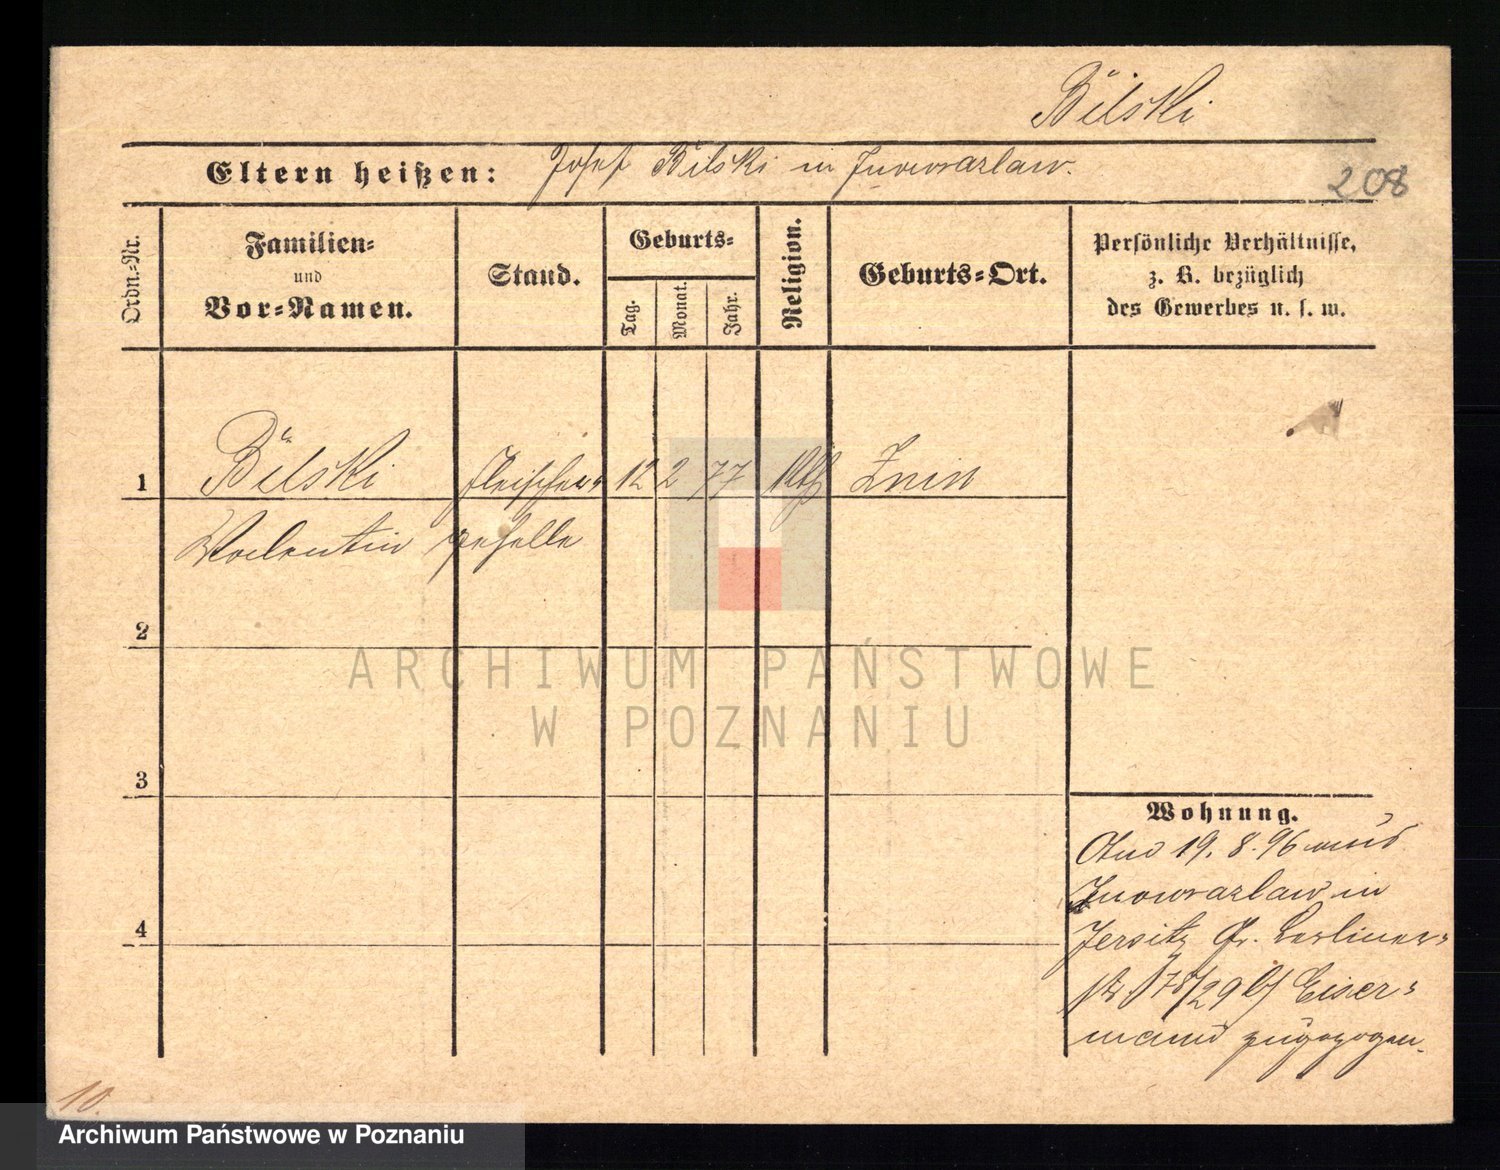 Bilski
Eltern heißen: Josef Bilski in Inowrazlaw.
208
Ordn.-Nr.
Familien-
und
Vor-Namen.
Stand.
Geburts-
Tag.
Monat.
Jahr.
Religion.
Geburts-Ort.
Persönliche Verhältnisse,
z. B. bezüglich
des Gewerbes u. s. w.
1 Bilski Fleischer- 12 2 77 Kth Znin
Valentin geselle
2
3
4
Wohnung.
19. 8. 96 aus
Inowrazlaw in
Jersitz Gr. Berliner-
str 178/29 b/ Eiser-
mann zugezogen.
10.
ARCHIWUM PAŃSTWOWE
W POZNANIU
Archiwum Państwowe w Poznaniu